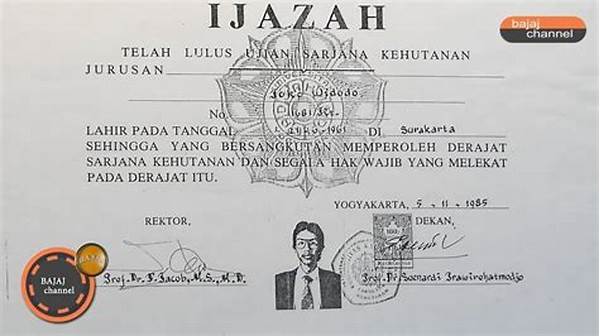 IJAZAH
bajaj
channel
TELAH LULUS UJIAN SARJANA KEHUTANAN
JURUSAN
Joko Widodo
No. 1681/KT
LAHIR PADA TANGGAL 21-6-1961 DI Surakarta
SEHINGGA YANG BERSANGKUTAN MEMPEROLEH DERAJAT
SARJANA KEHUTANAN DAN SEGALA HAK WAJIB YANG MELEKAT
PADA DERAJAT ITU.
YOGYAKARTA, 5-11-1985
REKTOR,
DEKAN,
Prof. Dr. T. Jacob, M.S., M.D.
Prof. Dr. Soenardi Prawirohatmodjo
BAJAJ
channel
BAJAJ